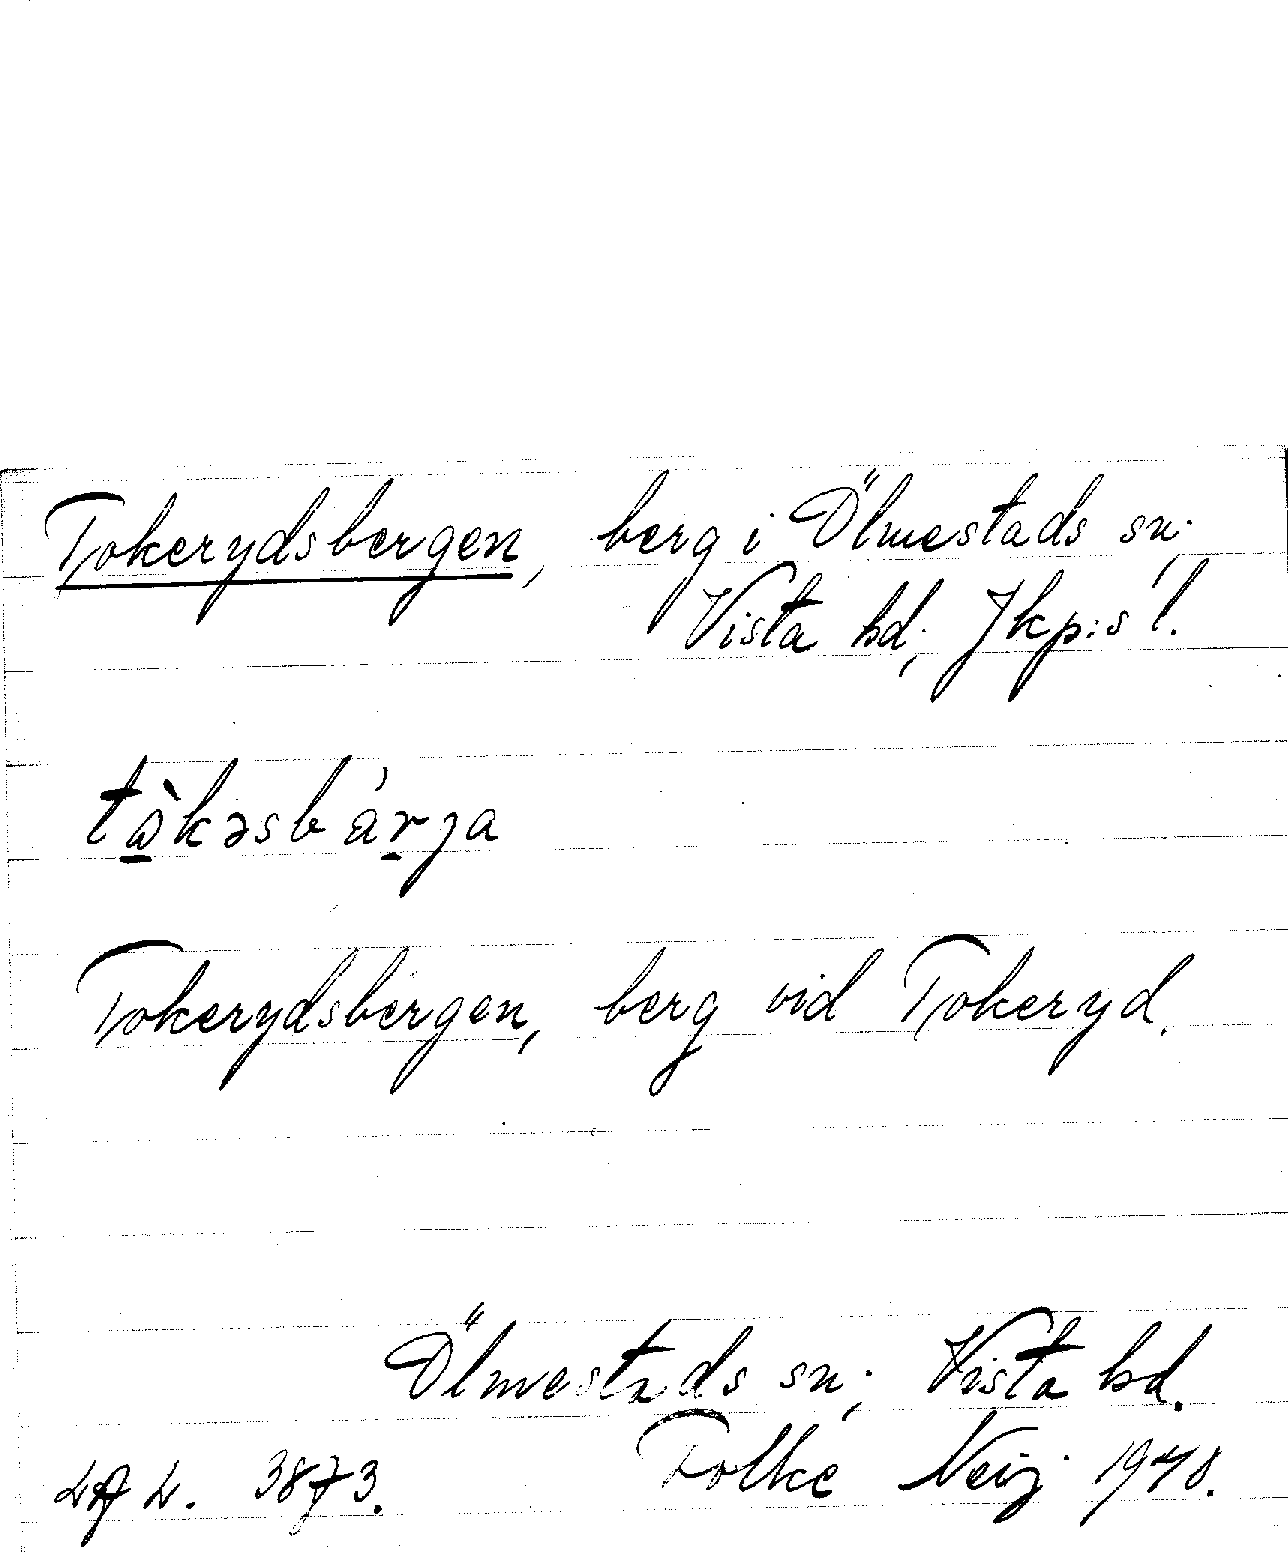 Tokerydsbergen, berg i Ölmestads sn;
Vista hd; Jkp:s l.
tȁ̱kəsbáṟja
Tokerydsbergen, berg vid Tokeryd.
Ölmestads sn; Vista hd.
LAL. 3873. Folke Neij 1948.